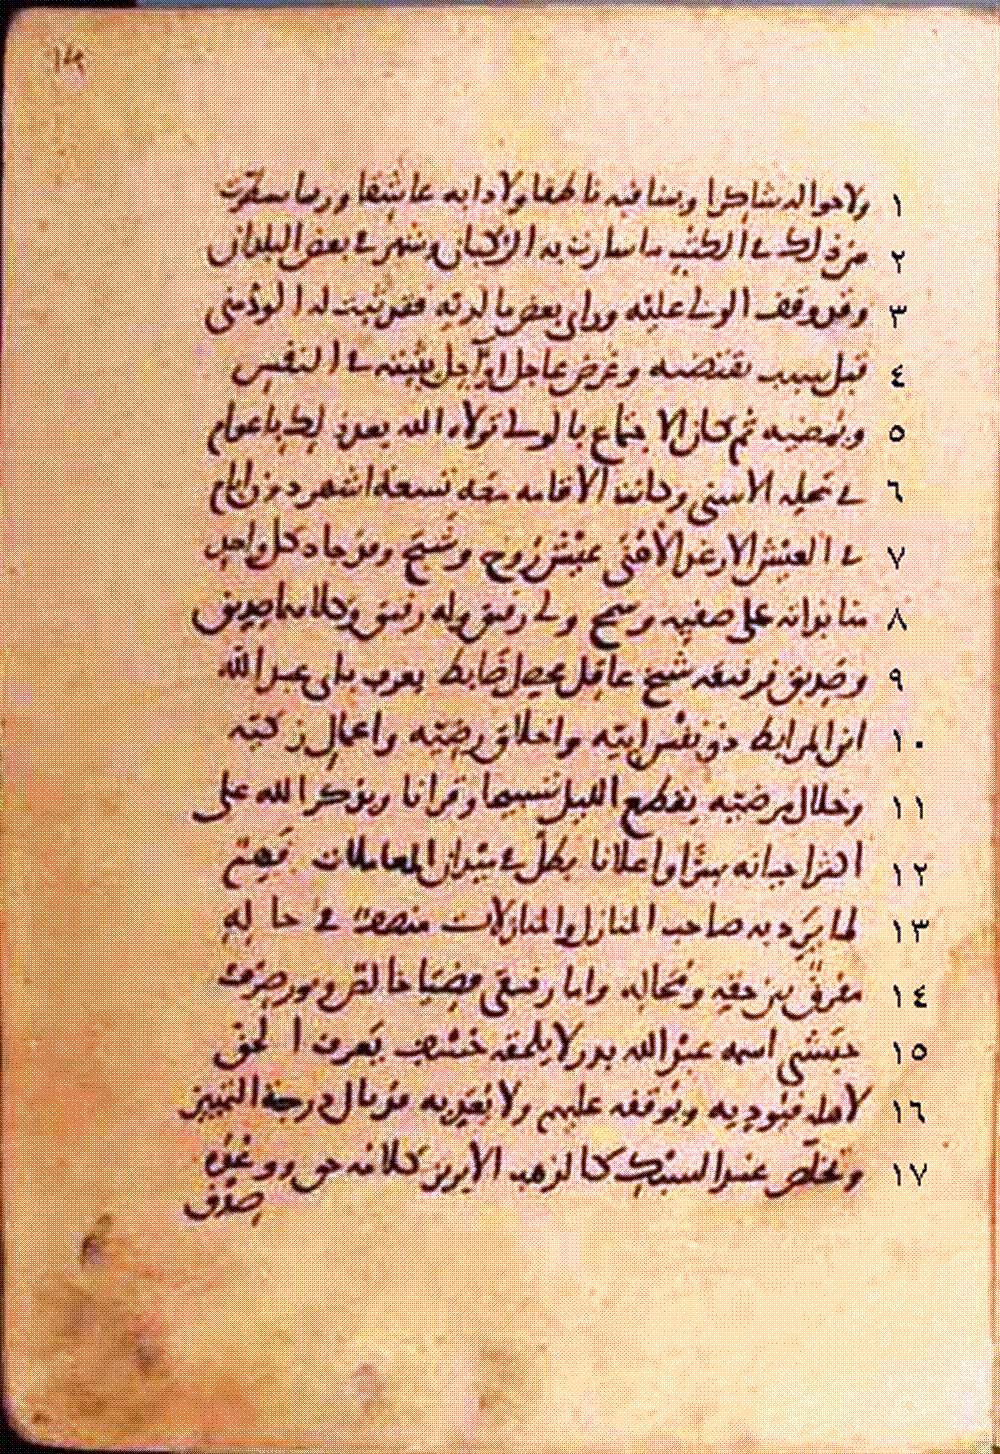 ١٤
١ ولاحواله شاكرا وبمنافبه ناطقا ولادابه عاشقا وربما سطرت
٢ من ذلك في الكتب ما سارت به الركبان وشهر في بعض البلدان
٣ وقد وقف الولي عليه وراى بعض ما لديه فقد ثبت له الود مني
٤ قبل سبب يقتضيه وغرض عاجل او آجل يثبته في النفس
٥ ويمضيه ثم كان الاجتماع بالولي تولاه الله بعد ذلك باعوام
٦ في محله الاسنى وكانت الاقامه معه تسعة اشهر دون ايام
٧ في العيش الارغد الاهنى عيش روح وشبح وقد جاد كل واحد
٨ منا بذاته على صفيه وسمح ولي رفيق وله رفيق وكلاهما صديق
٩ وصديق فرفيقه شيخ عاقل محصل ضابط يعرف بابي عبد الله
١٠ ابن المرابط ذو نفس ابيه واخلاق رضيه واعمال زكيه
١١ وخلال مرضيه يقطع الليل تسبيحا وقرانا ويذكر الله على
١٢ اكثر احيانه سرا واعلانا بطل في ميدان المعاملات فهم
١٣ لما يرد به صاحب المنازل والمنازلات منصف في حاله
١٤ مفرق بين حقه ومحاله واما رفيقي فضيا خالص ونور صرف
١٥ حبشي اسمه عبد الله بدر لا يلحقه خسف يعرف الحق
١٦ لاهله فيوديه ويوقفه عليهم ولا يعديه قد نال درجة التمييز
١٧ وتخلص عند السبك كالذهب الابريز كلامه حق ووعده
صدق